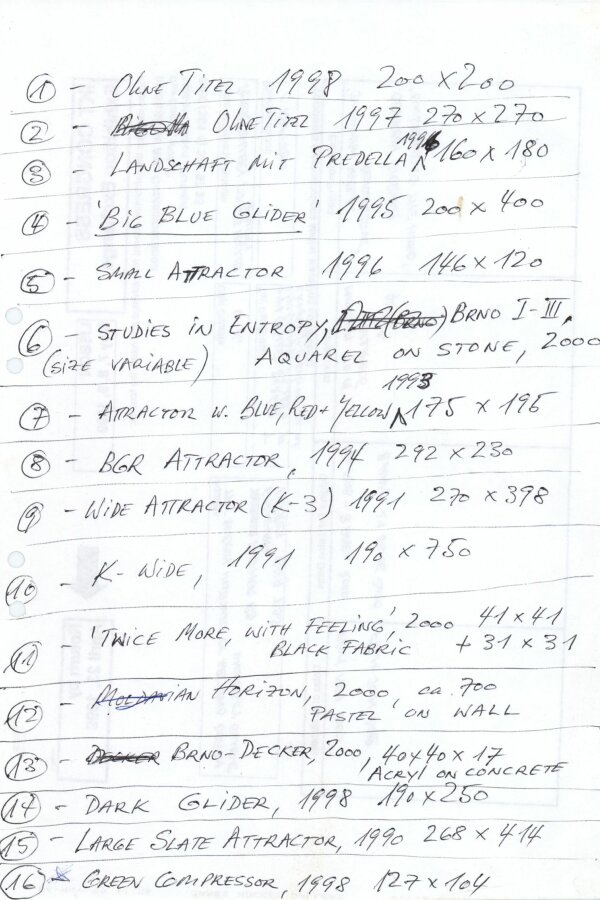 ① - OHNE TITEL 1998 200 x 200
② - OHNE TITEL 1997 270 x 270
③ - LANDSCHAFT MIT PREDELLA 1996 160 x 180
④ - 'BIG BLUE GLIDER' 1995 200 x 400
⑤ - SMALL ATTRACTOR 1996 146 x 120
⑥ - STUDIES IN ENTROPY, BRNO I-III,
(SIZE VARIABLE) AQUAREL ON STONE, 2000
⑦ - ATTRACTOR W. BLUE, RED + YELLOW 1993 175 x 195
⑧ - BGR ATTRACTOR, 1994 292 x 230
⑨ - WIDE ATTRACTOR (K-3) 1991 270 x 398
⑩ - K-WIDE, 1991 190 x 750
⑪ - 'TWICE MORE, WITH FEELING', 2000 41 x 41
BLACK FABRIC + 31 x 31
⑫ - MOLDAVIAN HORIZON, 2000, ca. 700
PASTEL ON WALL
⑬ - DECKER BRNO-DECKER, 2000, 40x40 x 17
ACRYL ON CONCRETE
⑭ - DARK GLIDER, 1998 190 x 250
⑮ - LARGE SLATE ATTRACTOR, 1990 268 x 414
⑯ - GREEN COMPRESSOR, 1998 127 x 104